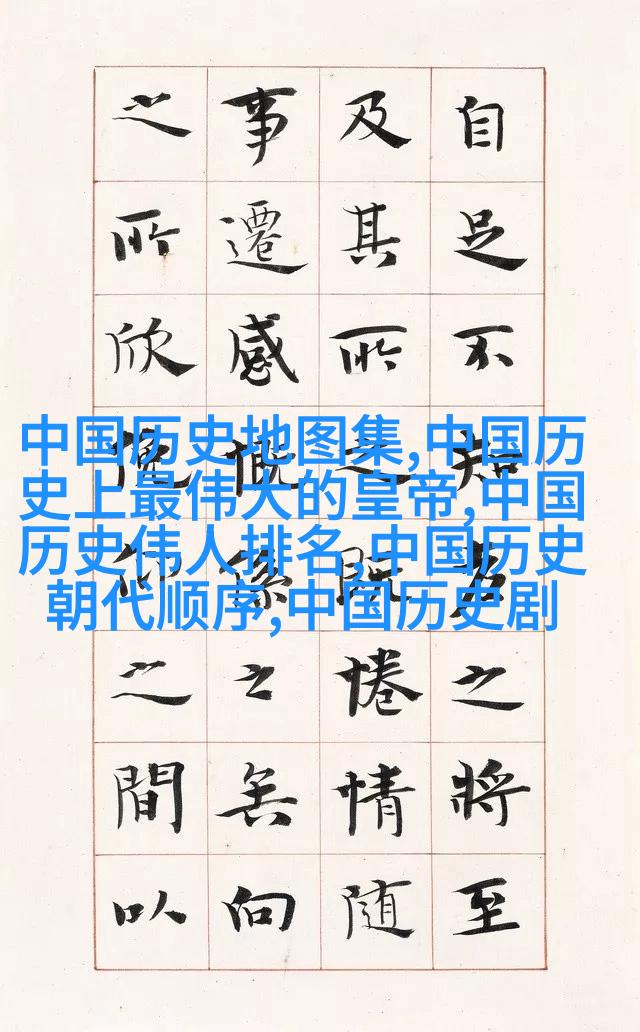 自足不知老之將至
及其所之既惓情随
事遷感慨係之矣向
之所欣俛仰之間以
中国历史地图集,中国历
史上最伟大的皇帝,中国
历史伟人排名,中国历史
朝代顺序,中国历史剧